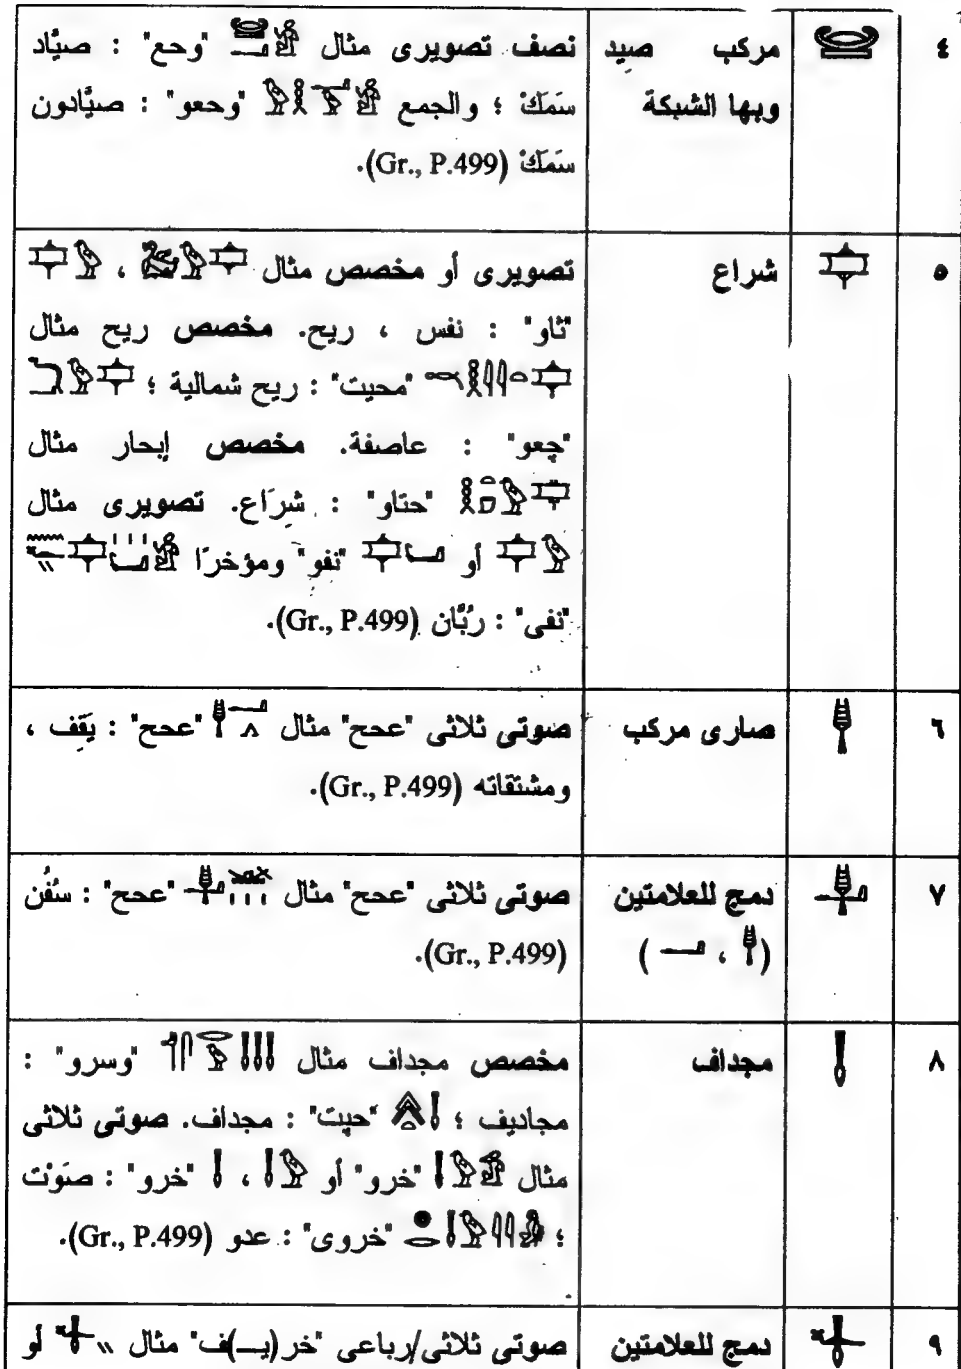 ٤ مركب صيد نصف تصويرى مثال "وحع" : صيَّاد
وبها الشبكة سَمَكْ ؛ والجمع "وحعو" : صيَّادون
سَمَكْ (Gr., P.499).
٥ شراع تصويرى أو مخصص مثال ،
"ثاو" : نفس ، ريح. مخصص ريح مثال
"محيت" : ريح شمالية ؛
"چعو" : عاصفة. مخصص إبحار مثال
"حتاو" : شرَاع. تصويرى مثال
أو "نفو" ومؤخرًا
"نفى" : رُبَّان (Gr., P.499).
٦ صارى مركب صوتى ثلاثى "عحح" مثال "عحح" : يَقِف ،
ومشتقاته (Gr., P.499).
٧ دمج للعلامتين صوتى ثلاثى "عحح" مثال "عحح" : سُفُن
( ، ) (Gr., P.499).
٨ مجداف مخصص مجداف مثال "وسرو" :
مجاديف ؛ "حيت" : مجداف. صوتى ثلاثى
مثال "خرو" أو ، "خرو" : صَوْت
؛ "خروى" : عدو (Gr., P.499).
٩ دمج للعلامتين صوتى ثلاثى/رباعى "خر(يـ)ف" مثال أو